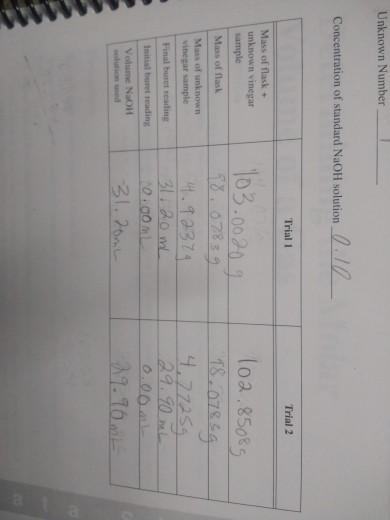 Unknown Number 1
Concentration of standard NaOH solution 0.10
Trial 1 Trial 2
Mass of flask +
unknown vinegar
sample
103.0020 g 102.8508g
Mass of flask 98.0783 g 98.0783g
Mass of unknown
vinegar sample
4.9237g 4.7725g
Final buret reading 31.20 mL 29.90 mL
Initial buret reading 0.00mL 0.00 mL
Volume NaOH
solution used
31.20mL 29.90 mL